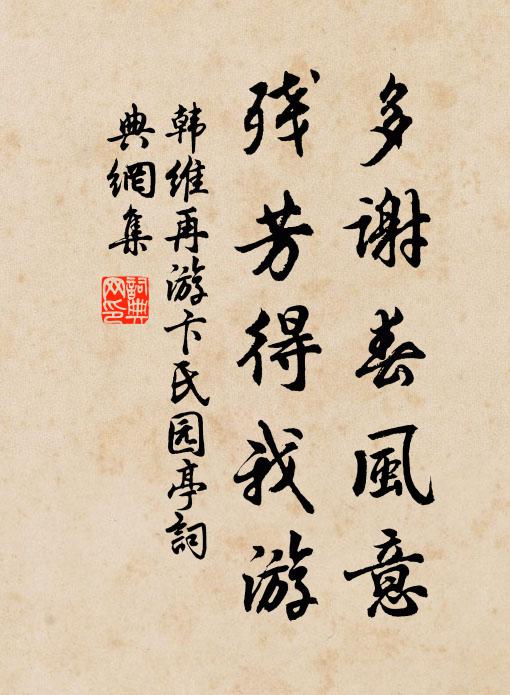 多謝春風意
残芳得我游
韩维再游卞氏园亭詞
典網集
詞典網印